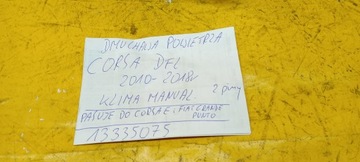 DMUCHAWA POWIETRZA
CORSA D E L
2010-2018r
KLIMA MANUAL 2 piny
PASUJE DO CORSA E i FIAT GRANDE
PUNTO
13335075